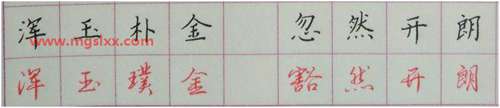 浑玉朴金 忽然开朗
www.mgslxx.com
浑玉璞金 豁然开朗